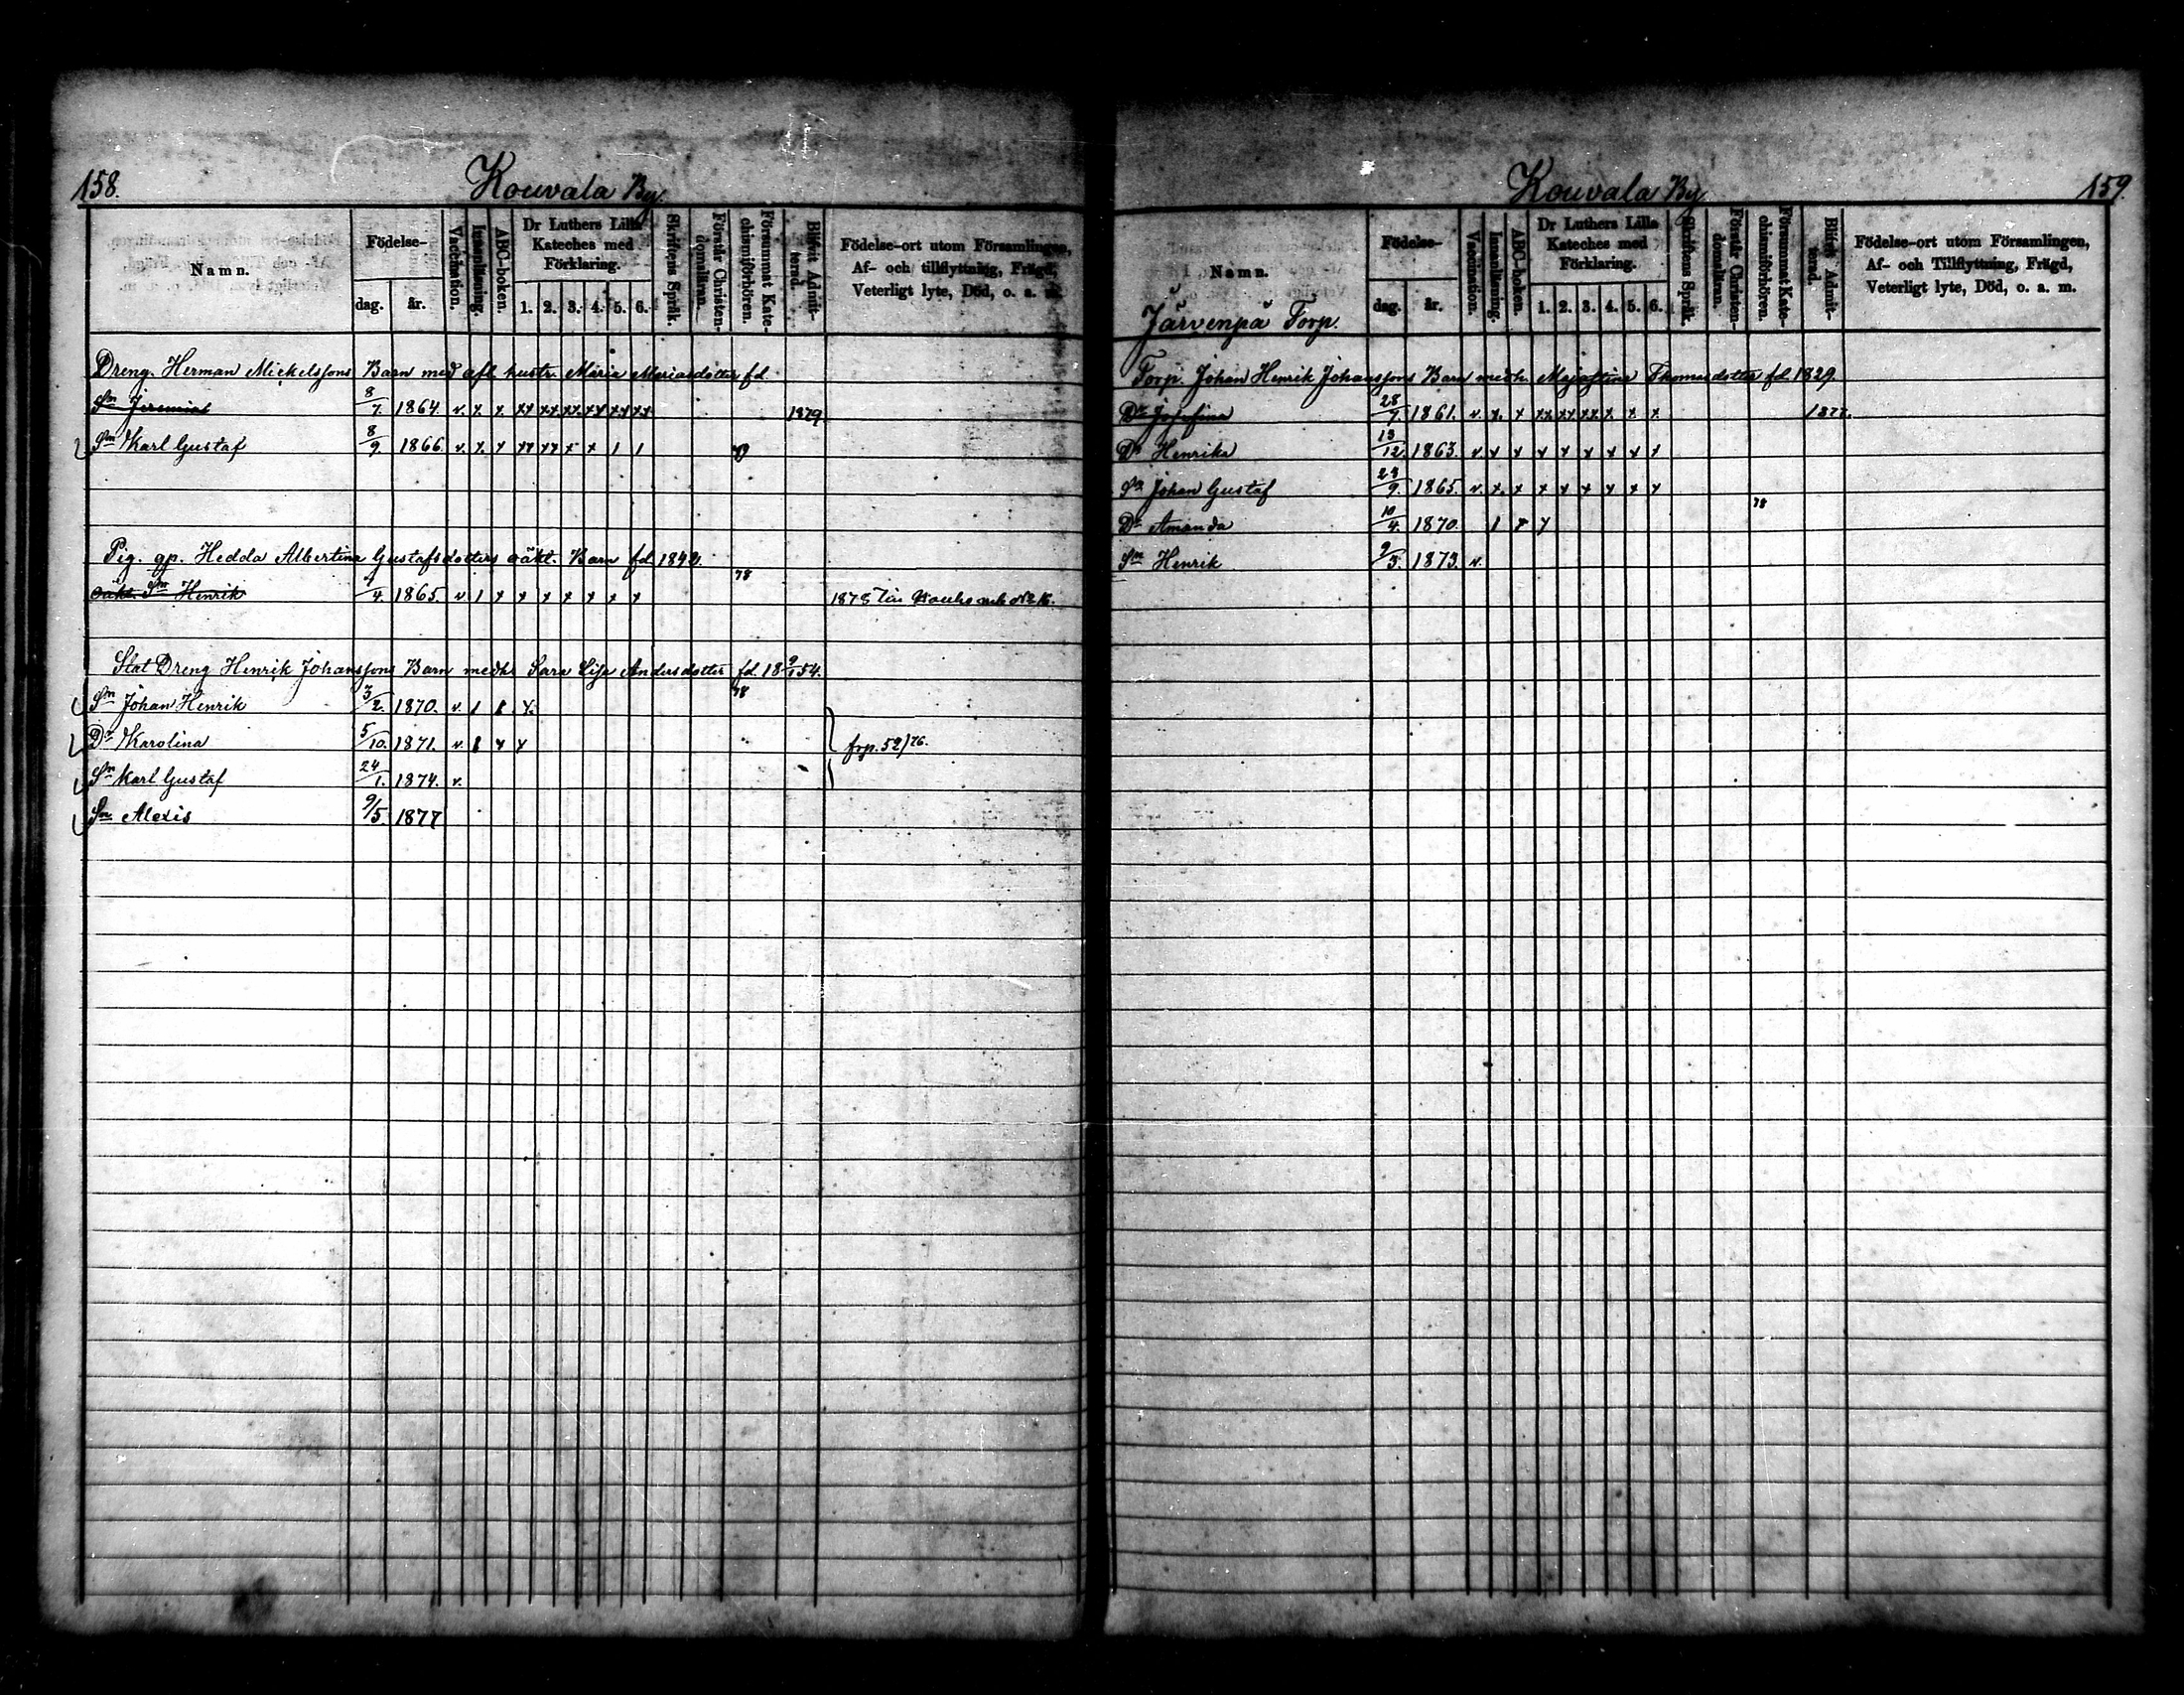 158.
Kouvala By.
Namn.
Födelse-
dag.
år.
Vaccination.
Innanläsning.
ABC-boken.
Dr Luthers Lilla
Kateches med
Förklaring.
1. 2. 3. 4. 5. 6.
Skriftens Språk.
Förstår Christen-
domsläran.
Försummat Kate-
chismiförhören.
Blifvit Admit-
terad.
Födelse-ort utom Församlingen,
Af- och tillflyttning, Frägd,
Veterligt lyte, Död, o. a. m.
Dreng. Herman Mickelssons Barn med afl. hustr. Maria Mariasdotter fd.
Sn Jeremias 8/7. 1864. v. x x xx xx xx xx xx xx 1879
Sn Karl Gustaf 8/9. 1866. v. x x xx xx x x 1 1
Pig. gp. Hedda Albertina Gustafsdotters oäkt. Barn fd. 1842.
78
oäkt. Sn Henrik /4. 1865. v 1 x x x x x x x 1878
Stat Dreng Henrik Johanssons Barn medh. Sara Lisa Andersdotter fd. 18 9/1 54.
78
Sn Johan Henrik 3/2. 1870. v. 1 1 x.
Dr Karolina 5/10. 1871. v. 1 x x frp. 52/76.
Sn Karl Gustaf 24/1. 1874. v.
Sn Alexis 9/5. 1877
159.
Kouvala By
Namn.
Järvenpä Torp.
Födelse-
dag.
år.
Vaccination.
Innanläsning.
ABC-boken.
Dr Luthers Lilla
Kateches med
Förklaring.
1. 2. 3. 4. 5. 6.
Skriftens Språk.
Förstår Christen-
domsläran.
Försummat Kate-
chismiförhören.
Blifvit Admit-
terad.
Födelse-ort utom Församlingen,
Af- och Tillflyttning, Frägd,
Veterligt lyte, Död, o. a. m.
Torp. Johan Henrik Johanssons Barn medh. Majastina Thomasdotter fd. 1829.
Dr Josefina 28/7 1861. v. x. x xx xx xx x x x 1877.
Dr Henrika 13/12. 1863. v x x x x x x x x
Sn Johan Gustaf 23/9. 1865. v. x. x x x x x x x
78
Dr Amanda 10/4. 1870. 1 x x
Sn Henrik 2/3. 1873. v.